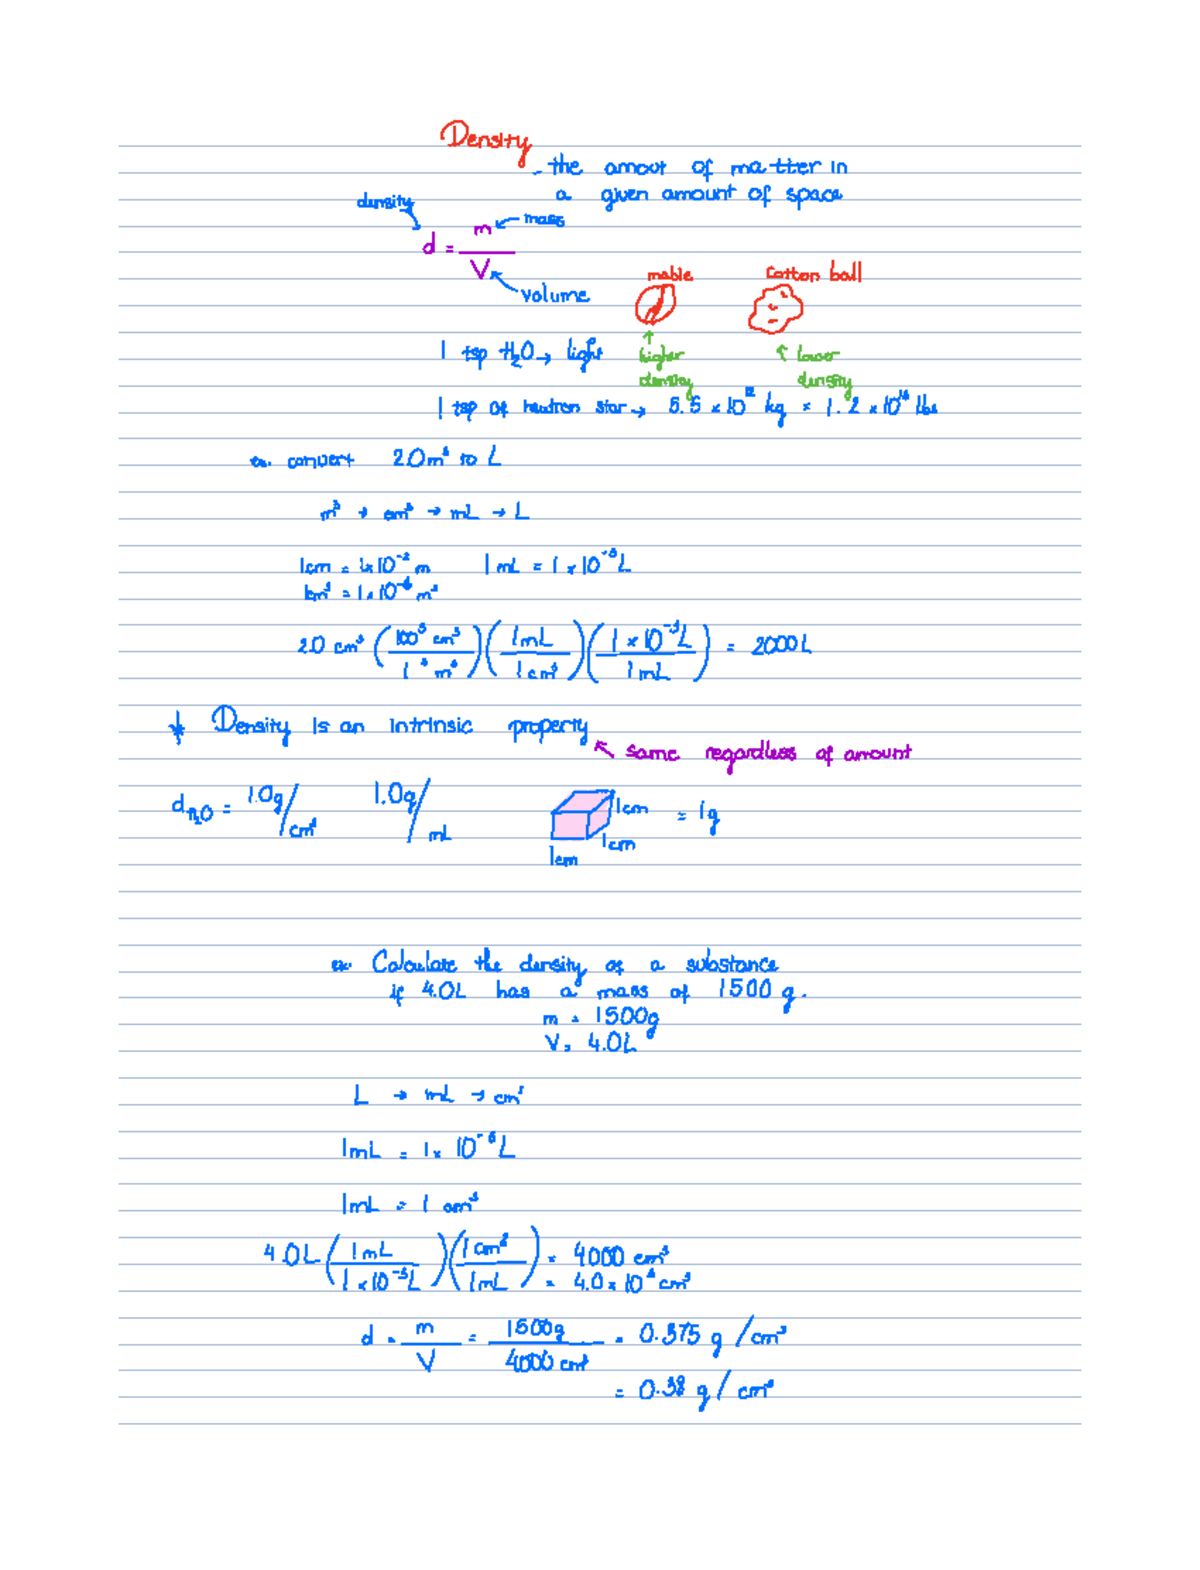 Density
- the amout of matter in
a given amount of space
density
d = m/V
mass
volume
mable
Cotton ball
higher density
lower density
1 tsp H₂O → light
1 tsp of neutron star → 5.5 × 10¹² kg = 1.2 × 10¹⁶ lbs
ex. convert 2.0 m³ to L
m³ → cm³ → mL → L
1cm = 1×10⁻² m 1 mL = 1 × 10⁻³ L
1cm³ = 1 × 10⁻⁶ m³
2.0 cm³ (100³ cm³ / 1³ m³) (1 mL / 1 cm³) (1 × 10⁻³ L / 1 mL) = 2000 L
* Density is an intrinsic property
same regardless of amount
d H₂O = 1.0g/cm³ 1.0g/mL
1cm
1cm
1cm
= 1g
ex. Calculate the density of a substance
if 4.0L has a mass of 1500 g.
m = 1500g
V = 4.0L
L → mL → cm³
1mL = 1 × 10⁻³ L
1mL = 1 cm³
4.0L (1 mL / 1 × 10⁻³ L) (1 cm³ / 1 mL) = 4000 cm³
= 4.0 × 10³ cm³
d = m/V = 1500g / 4000 cm³ = 0.375 g/cm³
= 0.38 g/cm³